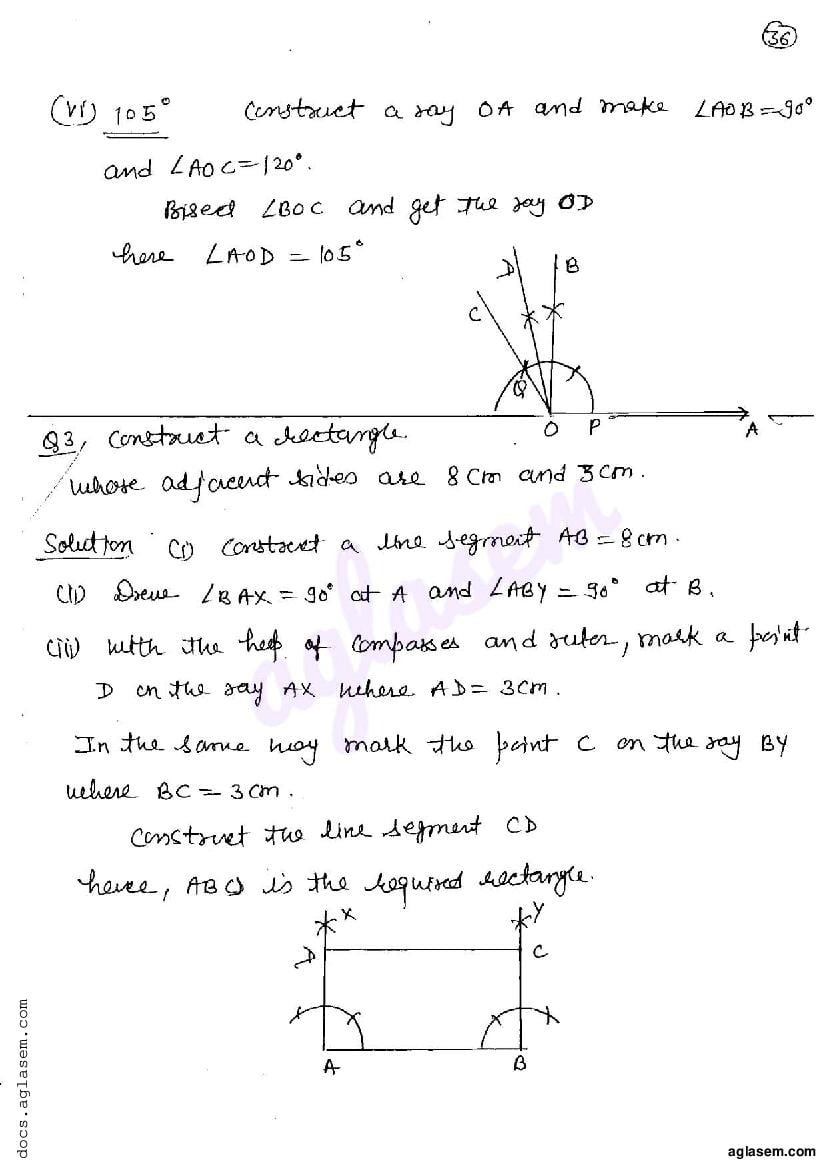 36
(vi) 105° Construct a ray OA and make ∠AOB=90°
and ∠AOC=120°.
Bisect ∠BOC and get the ray OD
here ∠AOD = 105°
D B
C
Q
O P A
Q3, Construct a rectangle
whose adjacent sides are 8 cm and 3 cm.
Solution (i) Construct a line segment AB = 8 cm.
(ii) Draw ∠BAX = 90° at A and ∠ABY = 90° at B.
(iii) With the help of compasses and ruler, mark a point
D on the ray AX where AD = 3 cm.
In the same way mark the point C on the ray BY
where BC = 3 cm.
Construct the line segment CD
hence, ABCD is the required rectangle.
X Y
D C
A B
aglasem
docs.aglasem.com
aglasem.com